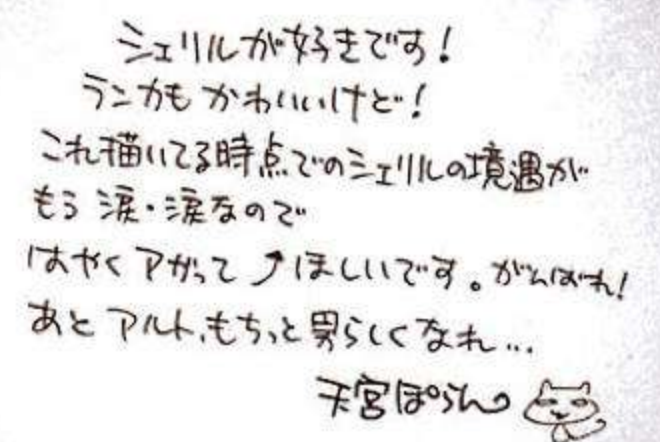 シェリルが好きです!
ランカもかわいいけど!
これ描いてる時点でのシェリルの境遇が
もう涙・涙なので
はやくアがって⤴ほしいです。がんばれ!
あとアルト、もちっと男らしくなれ…
天宮ぽらん